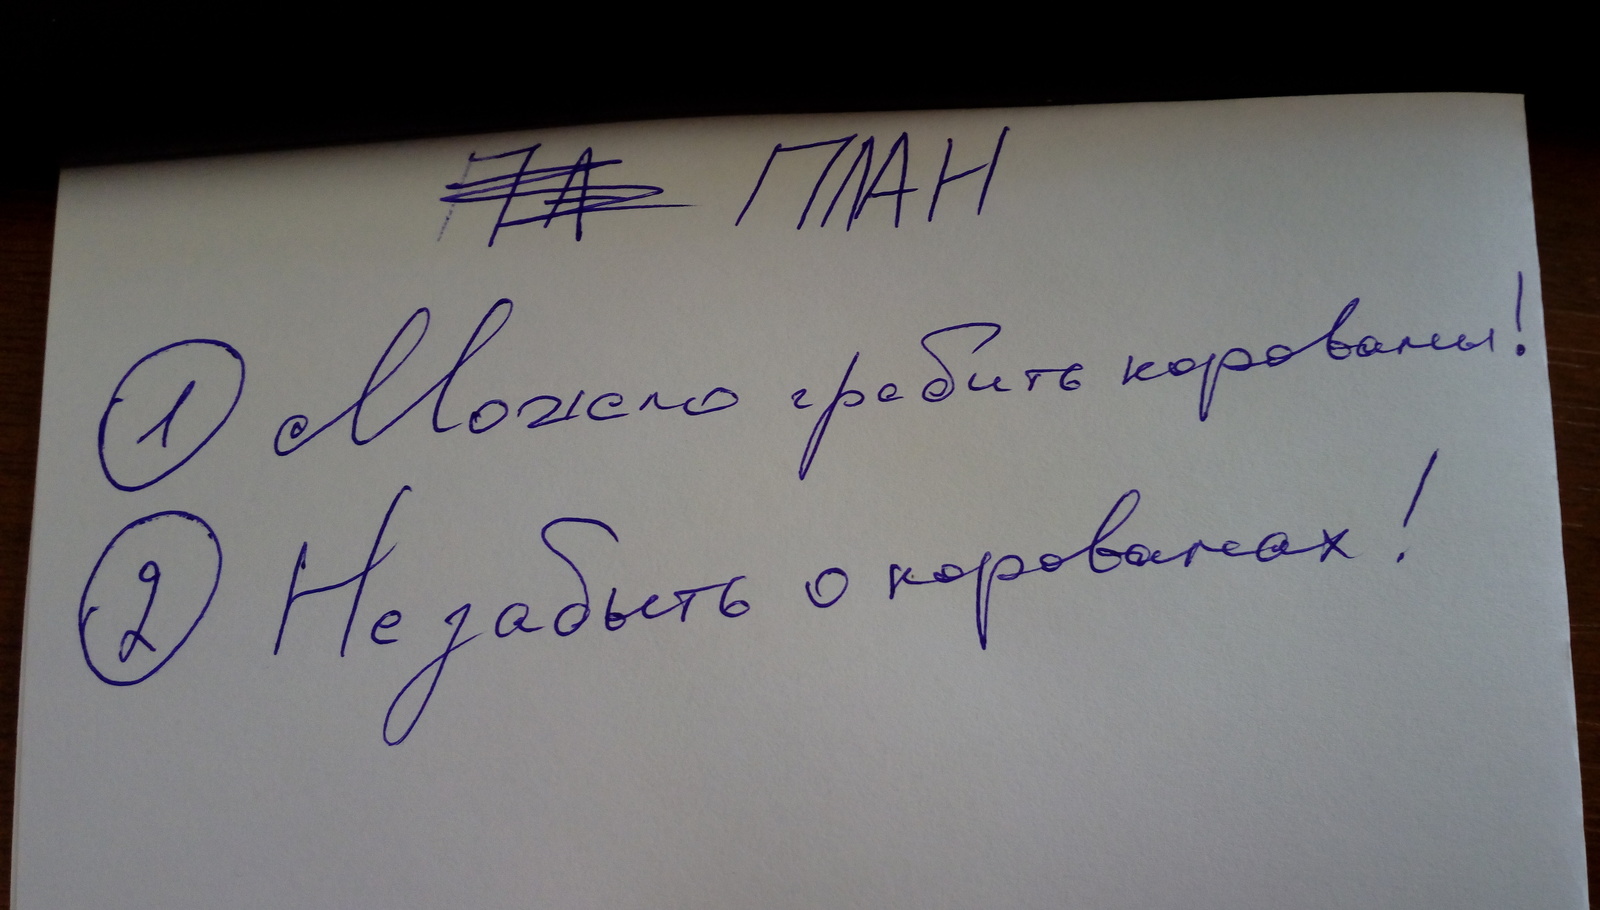 ПЛАН
1 Можно грабить корованы!
2 Не забыть о корованах!